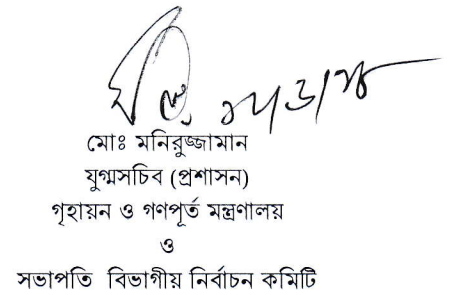 মোঃ মনিরুজ্জামান
যুগ্মসচিব (প্রশাসন)
গৃহায়ন ও গণপূর্ত মন্ত্রণালয়
ও
সভাপতি বিভাগীয় নির্বাচন কমিটি